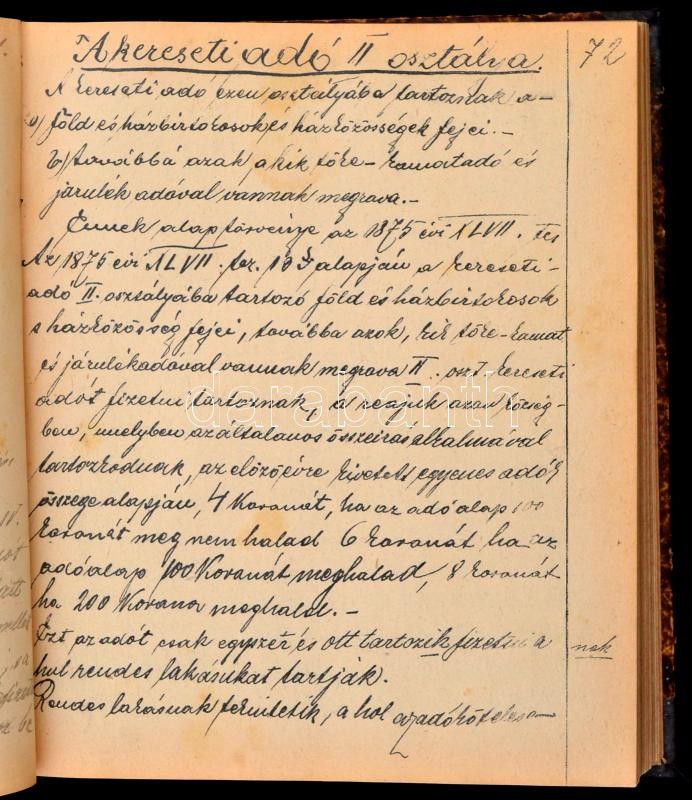 A kereseti adó II osztálya.
72
A kereseti adó ezen osztályába tartoznak a-
a) föld és házbirtokosok és házközösségek fejei. -
b) továbbá azok, a kik tőke-kamatadó és
járulék adóval vannak megrova. -
Ennek alaptörvénye az 1875 évi XLVII. tcz
Az 1875 évi XLVII. tcz. 19 § alapján a kereseti-
adó II. osztályába tartozó föld és házbirtokosok
s házközösség fejei, továbba azok, kik tőke-kamat
és járulékadóval vannak megrova II. oszt. kereseti
adót fizetni tartoznak, a reájuk azon község-
ben, melyben az általános összeirás alkalmával
tartozkodnak, az előző évre kivetett egyenes adók
összege alapján, 4 Koronát, ha az adó alap 100
koronát meg nem halad 6 koronát ha az
adóalap 100 Koronát meghalad, 8 koronát
ha 200 Korona meghalad. -
Ezt az adót csak egyszer és ott tartozik fizetni a
nak
hol rendes lakásukat tartják.
Rendes lakásnak tekintetik, a hol az adóköteles-
darabanth